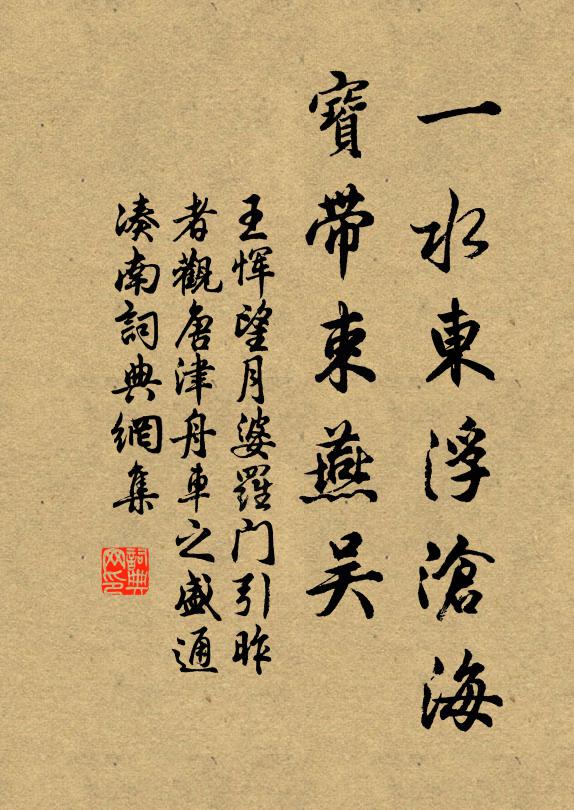 一水東浮滄海
寶帶束燕吴
王恽望月婆羅门引昨
者觀唐津舟車之盛通
凑南詞典網集
詞典
网印